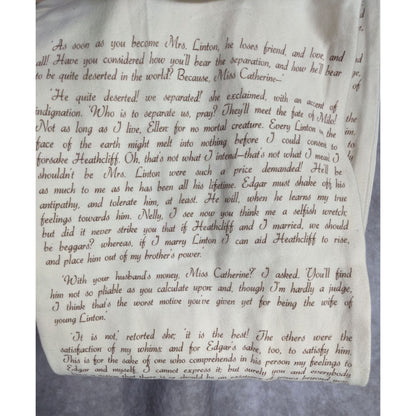 'As soon as you become Mrs. Linton, he loses friend, and love, and
all! Have you considered how you'll bear the separation, and how he'll bear
to be quite deserted in the world? Because, Miss Catherine—'
'He quite deserted! we separated!' she exclaimed, with an accent of
indignation. 'Who is to separate us, pray? They'll meet the fate of Milo!
Not as long as I live, Ellen: for no mortal creature. Every Linton on the
face of the earth might melt into nothing before I could consent to
forsake Heathcliff. Oh, that's not what I intend—that's not what I mean! I
shouldn't be Mrs. Linton were such a price demanded! He'll be
as much to me as he has been all his lifetime. Edgar must shake off his
antipathy, and tolerate him, at least. He will, when he learns my true
feelings towards him. Nelly, I see now you think me a selfish wretch;
but did it never strike you that if Heathcliff and I married, we should
be beggars? whereas, if I marry Linton I can aid Heathcliff to rise,
and place him out of my brother's power.'
'With your husband's money, Miss Catherine?' I asked. 'You'll find
him not so pliable as you calculate upon: and, though I'm hardly a judge,
I think that's the worst motive you've given yet for being the wife of
young Linton.'
'It is not,' retorted she; 'it is the best! The others were the
satisfaction of my whims: and for Edgar's sake, too, to satisfy him.
This is for the sake of one who comprehends in his person my feelings to
Edgar and myself. I cannot express it; but surely you and everybody
that there is or should be an existence of yours beyond